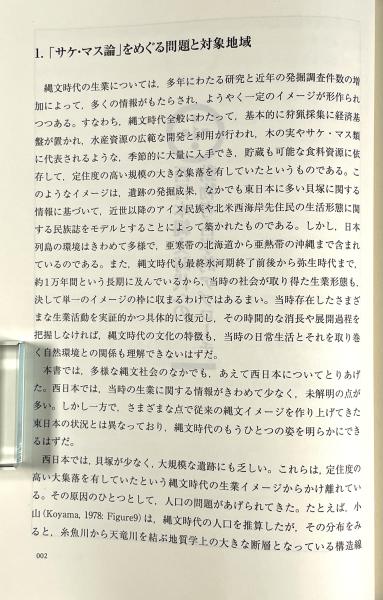 1. 「サケ・マス論」をめぐる問題と対象地域
縄文時代の生業については，多年にわたる研究と近年の発掘調査件数の増
加によって，多くの情報がもたらされ，ようやく一定のイメージが形作られ
つつある。すなわち，縄文時代全般にわたって，基本的に狩猟採集に経済基
盤が置かれ，水産資源の広範な開発と利用が行われ，木の実やサケ・マス類
に代表されるような，季節的に大量に入手でき，貯蔵も可能な食料資源に依
存して，定住度の高い規模の大きな集落を有していたというものである。こ
のようなイメージは，遺跡の発掘成果，なかでも東日本に多い貝塚に関する
情報に基づいて，近世以降のアイヌ民族や北米西海岸先住民の生活形態に関
する民族誌をモデルとすることによって築かれたものである。しかし，日本
列島の環境はきわめて多様で，亜寒帯の北海道から亜熱帯の沖縄まで含まれ
ているのである。また，縄文時代も最終氷河期終了前後から弥生時代まで，
約1万年間という長期に及んでいるから，当時の社会が取り得た生業形態も，
決して単一のイメージの枠に収まるわけではあるまい。当時存在したさまざ
まな生業活動を実証的かつ具体的に復元し，その時間的な消長や展開過程を
把握しなければ，縄文時代の文化の特徴も，当時の日常生活とそれを取り巻
く自然環境との関係も理解できないはずだ。
本書では，多様な縄文社会のなかでも，あえて西日本についてとりあげ
た。西日本では，当時の生業に関する情報がきわめて少なく，未解明の点が
多い。しかし一方で，さまざまな点で従来の縄文イメージを作り上げてきた
東日本の状況とは異なっており，縄文時代のもうひとつの姿を明らかにでき
るはずだ。
西日本では，貝塚が少なく，大規模な遺跡にも乏しい。これらは，定住度の
高い大集落を有していたという縄文時代の生業イメージからかけ離れてい
る。その原因のひとつとして，人口の問題があげられてきた。たとえば，小
山 (Koyama, 1978: Figure9) は，縄文時代の人口を推算したが，その分布をみ
ると，糸魚川から天竜川を結ぶ地質学上の大きな断層となっている構造線
002